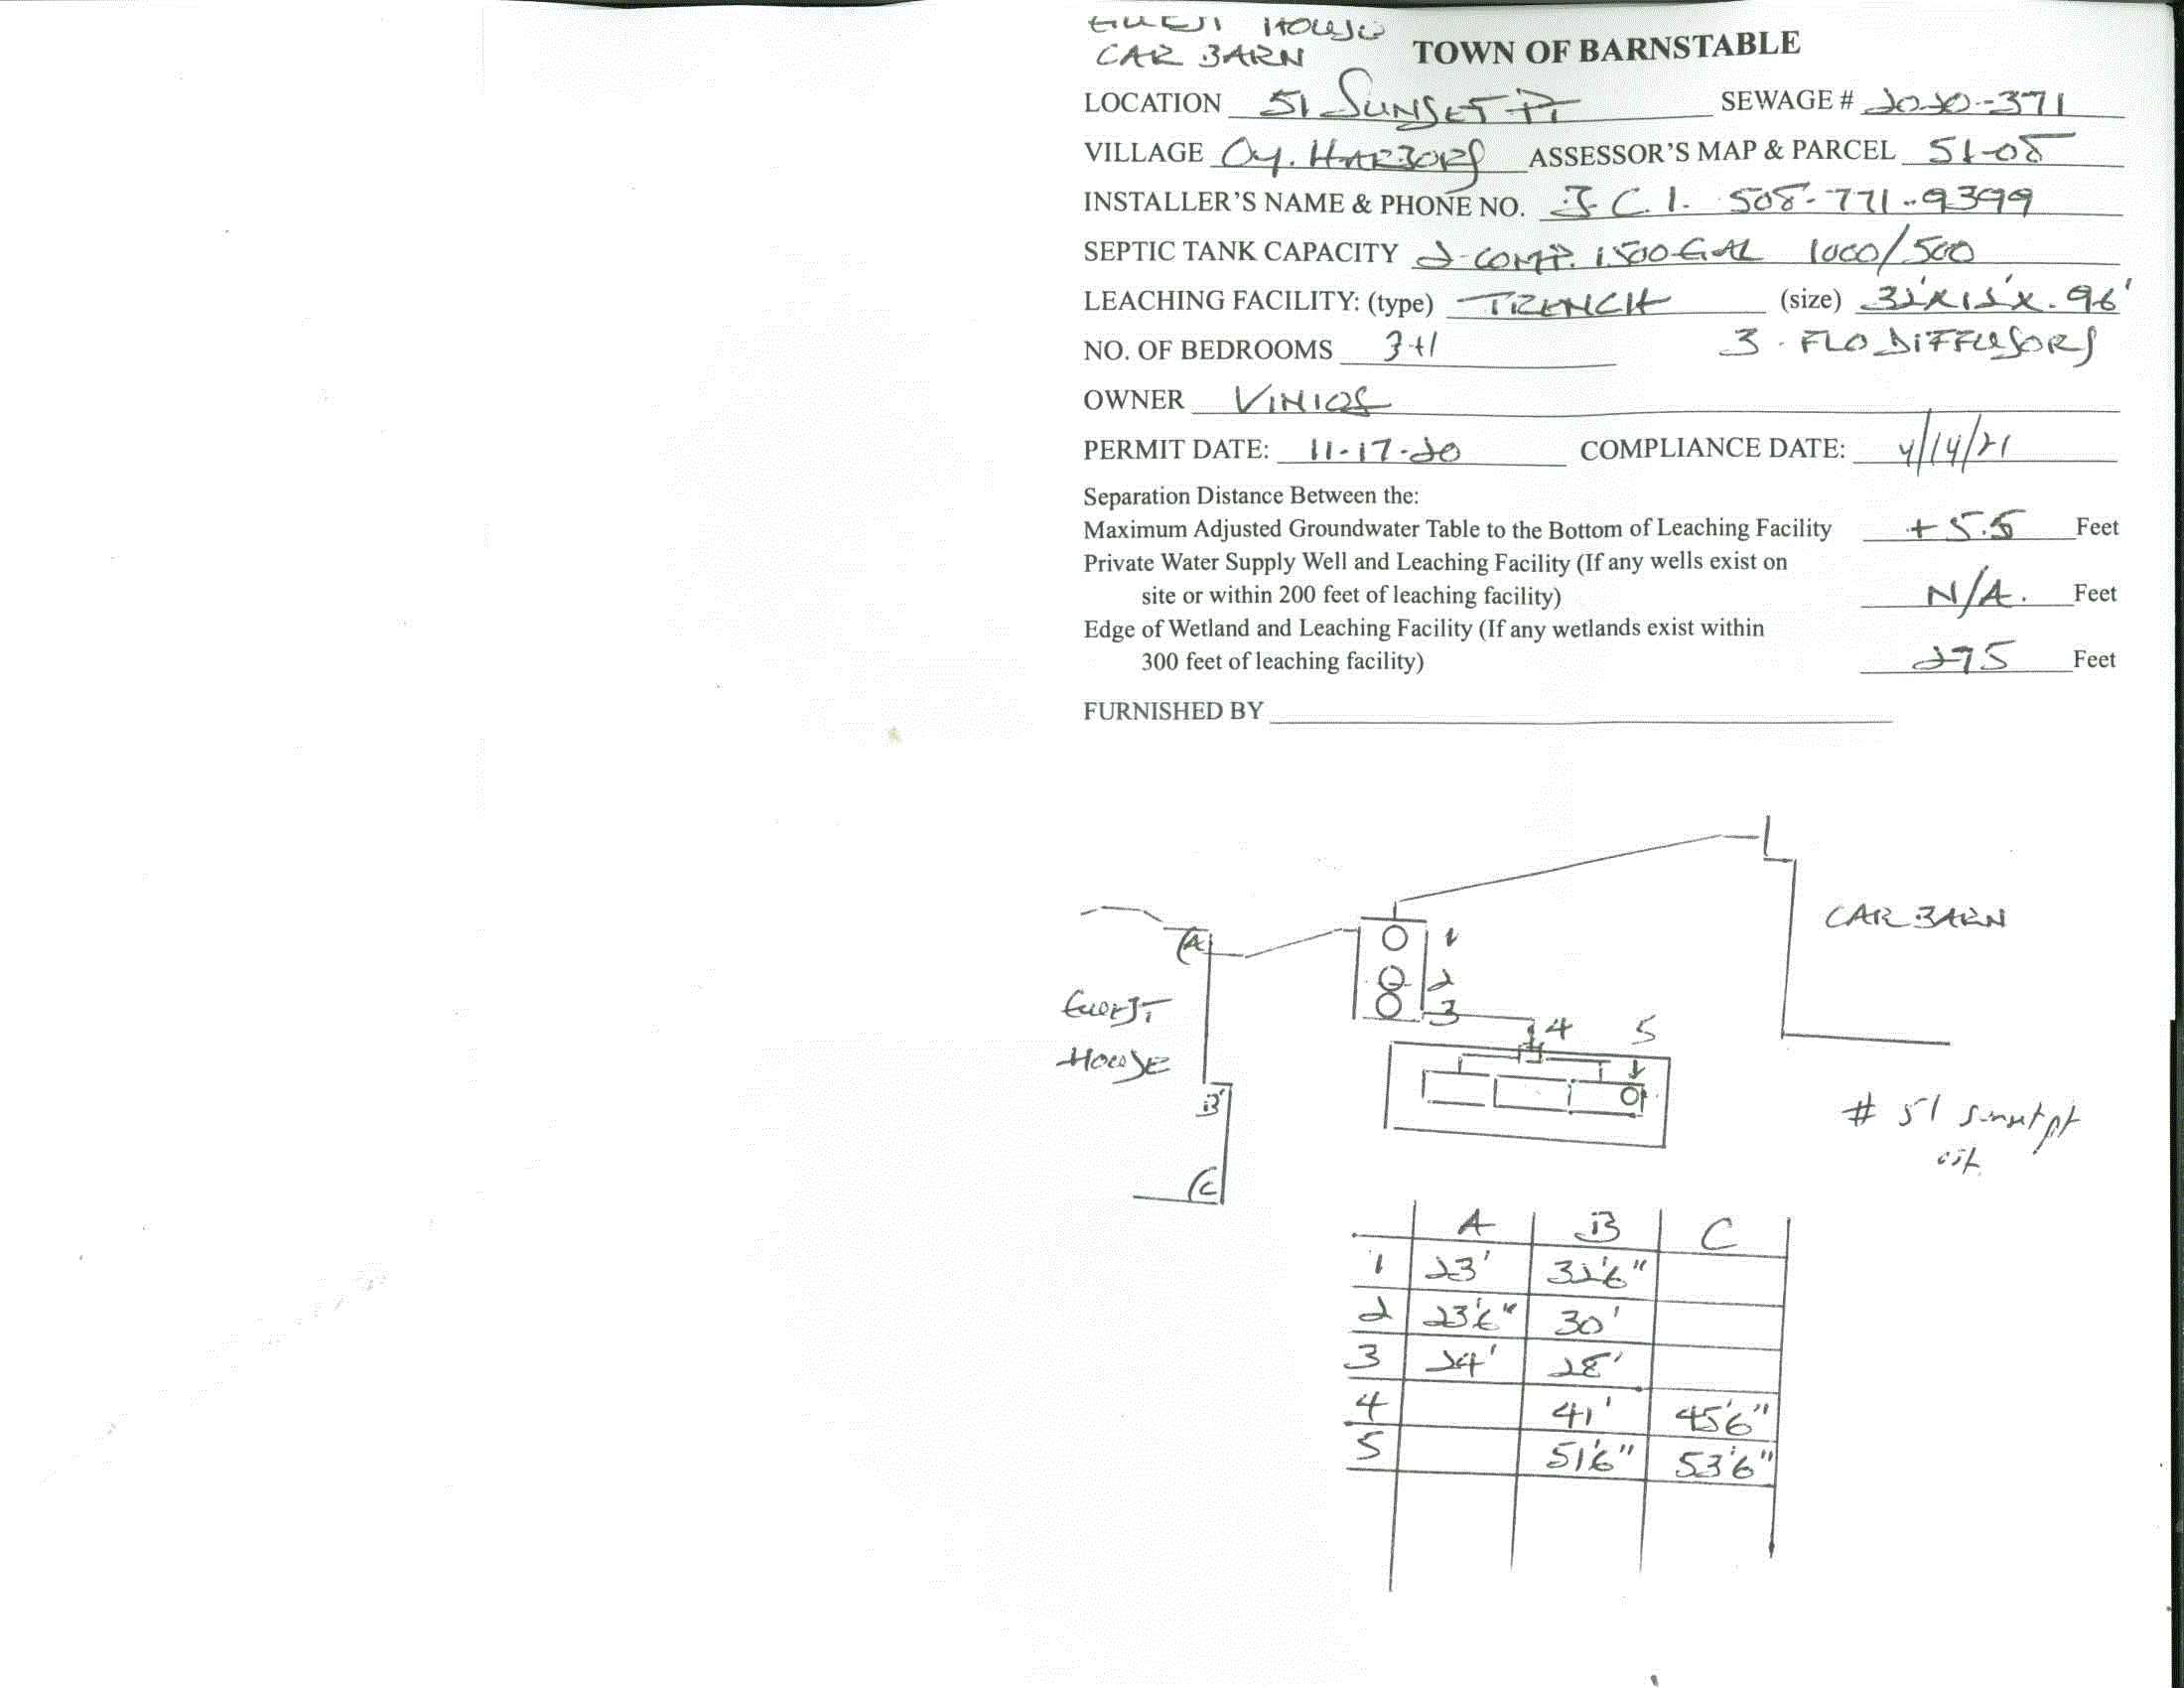 GUEST HOUSE
CAR BARN
TOWN OF BARNSTABLE
LOCATION 51 SUNSET PT SEWAGE # 2020-371
VILLAGE Oy. HARBORS ASSESSOR'S MAP & PARCEL 51-08
INSTALLER'S NAME & PHONE NO. J.C.I. 508-771-9399
SEPTIC TANK CAPACITY 2-COMP. 1500 GAL 1000/500
LEACHING FACILITY: (type) TRENCH (size) 32'x12'x.96'
NO. OF BEDROOMS 3+1 3-FLO DIFFUSORS
OWNER VINIOS
PERMIT DATE: 11-17-20 COMPLIANCE DATE: 4/14/21
Separation Distance Between the:
Maximum Adjusted Groundwater Table to the Bottom of Leaching Facility +5.5 Feet
Private Water Supply Well and Leaching Facility (If any wells exist on
site or within 200 feet of leaching facility) N/A. Feet
Edge of Wetland and Leaching Facility (If any wetlands exist within
300 feet of leaching facility) 275 Feet
FURNISHED BY
CAR BARN
A 1
2
GUEST 3
HOUSE 4 5
B
# 51 Sunset pt
C
A B C
1 23' 32'6"
2 23'6" 30'
3 24' 28'
4 41' 45'6"
5 51'6" 53'6"